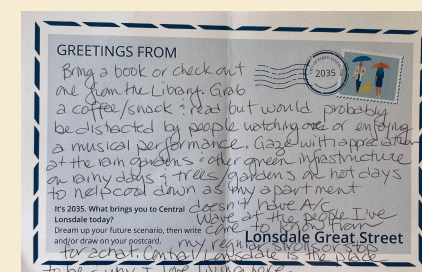 GREETINGS FROM
2035
Bring a book or check out
one from the Library. Grab
a coffee/snack & read but would probably
be distracted by people watching or enjoying
a musical performance. Gaze with appreciation
at the rain gardens & other green infrastructure
on rainy days & trees/gardens on hot days
to help cool down as my apartment
doesn't have A/C
Wave at the people I've
come to know from
my regular visits or stop
for a chat. Central Lonsdale is the place
to be & why I love living here.
It's 2035. What brings you to Central
Lonsdale today?
Dream up your future scenario, then write
and/or draw on your postcard.
Lonsdale Great Street